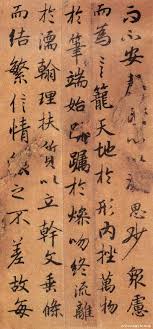 而不安罄澄心以凝思眇眾慮
而為言籠天地於形內挫萬物
於筆端始躑躅於燥吻終流離
於濡翰理扶質以立幹文垂條
而結繁信情貌之不差故每